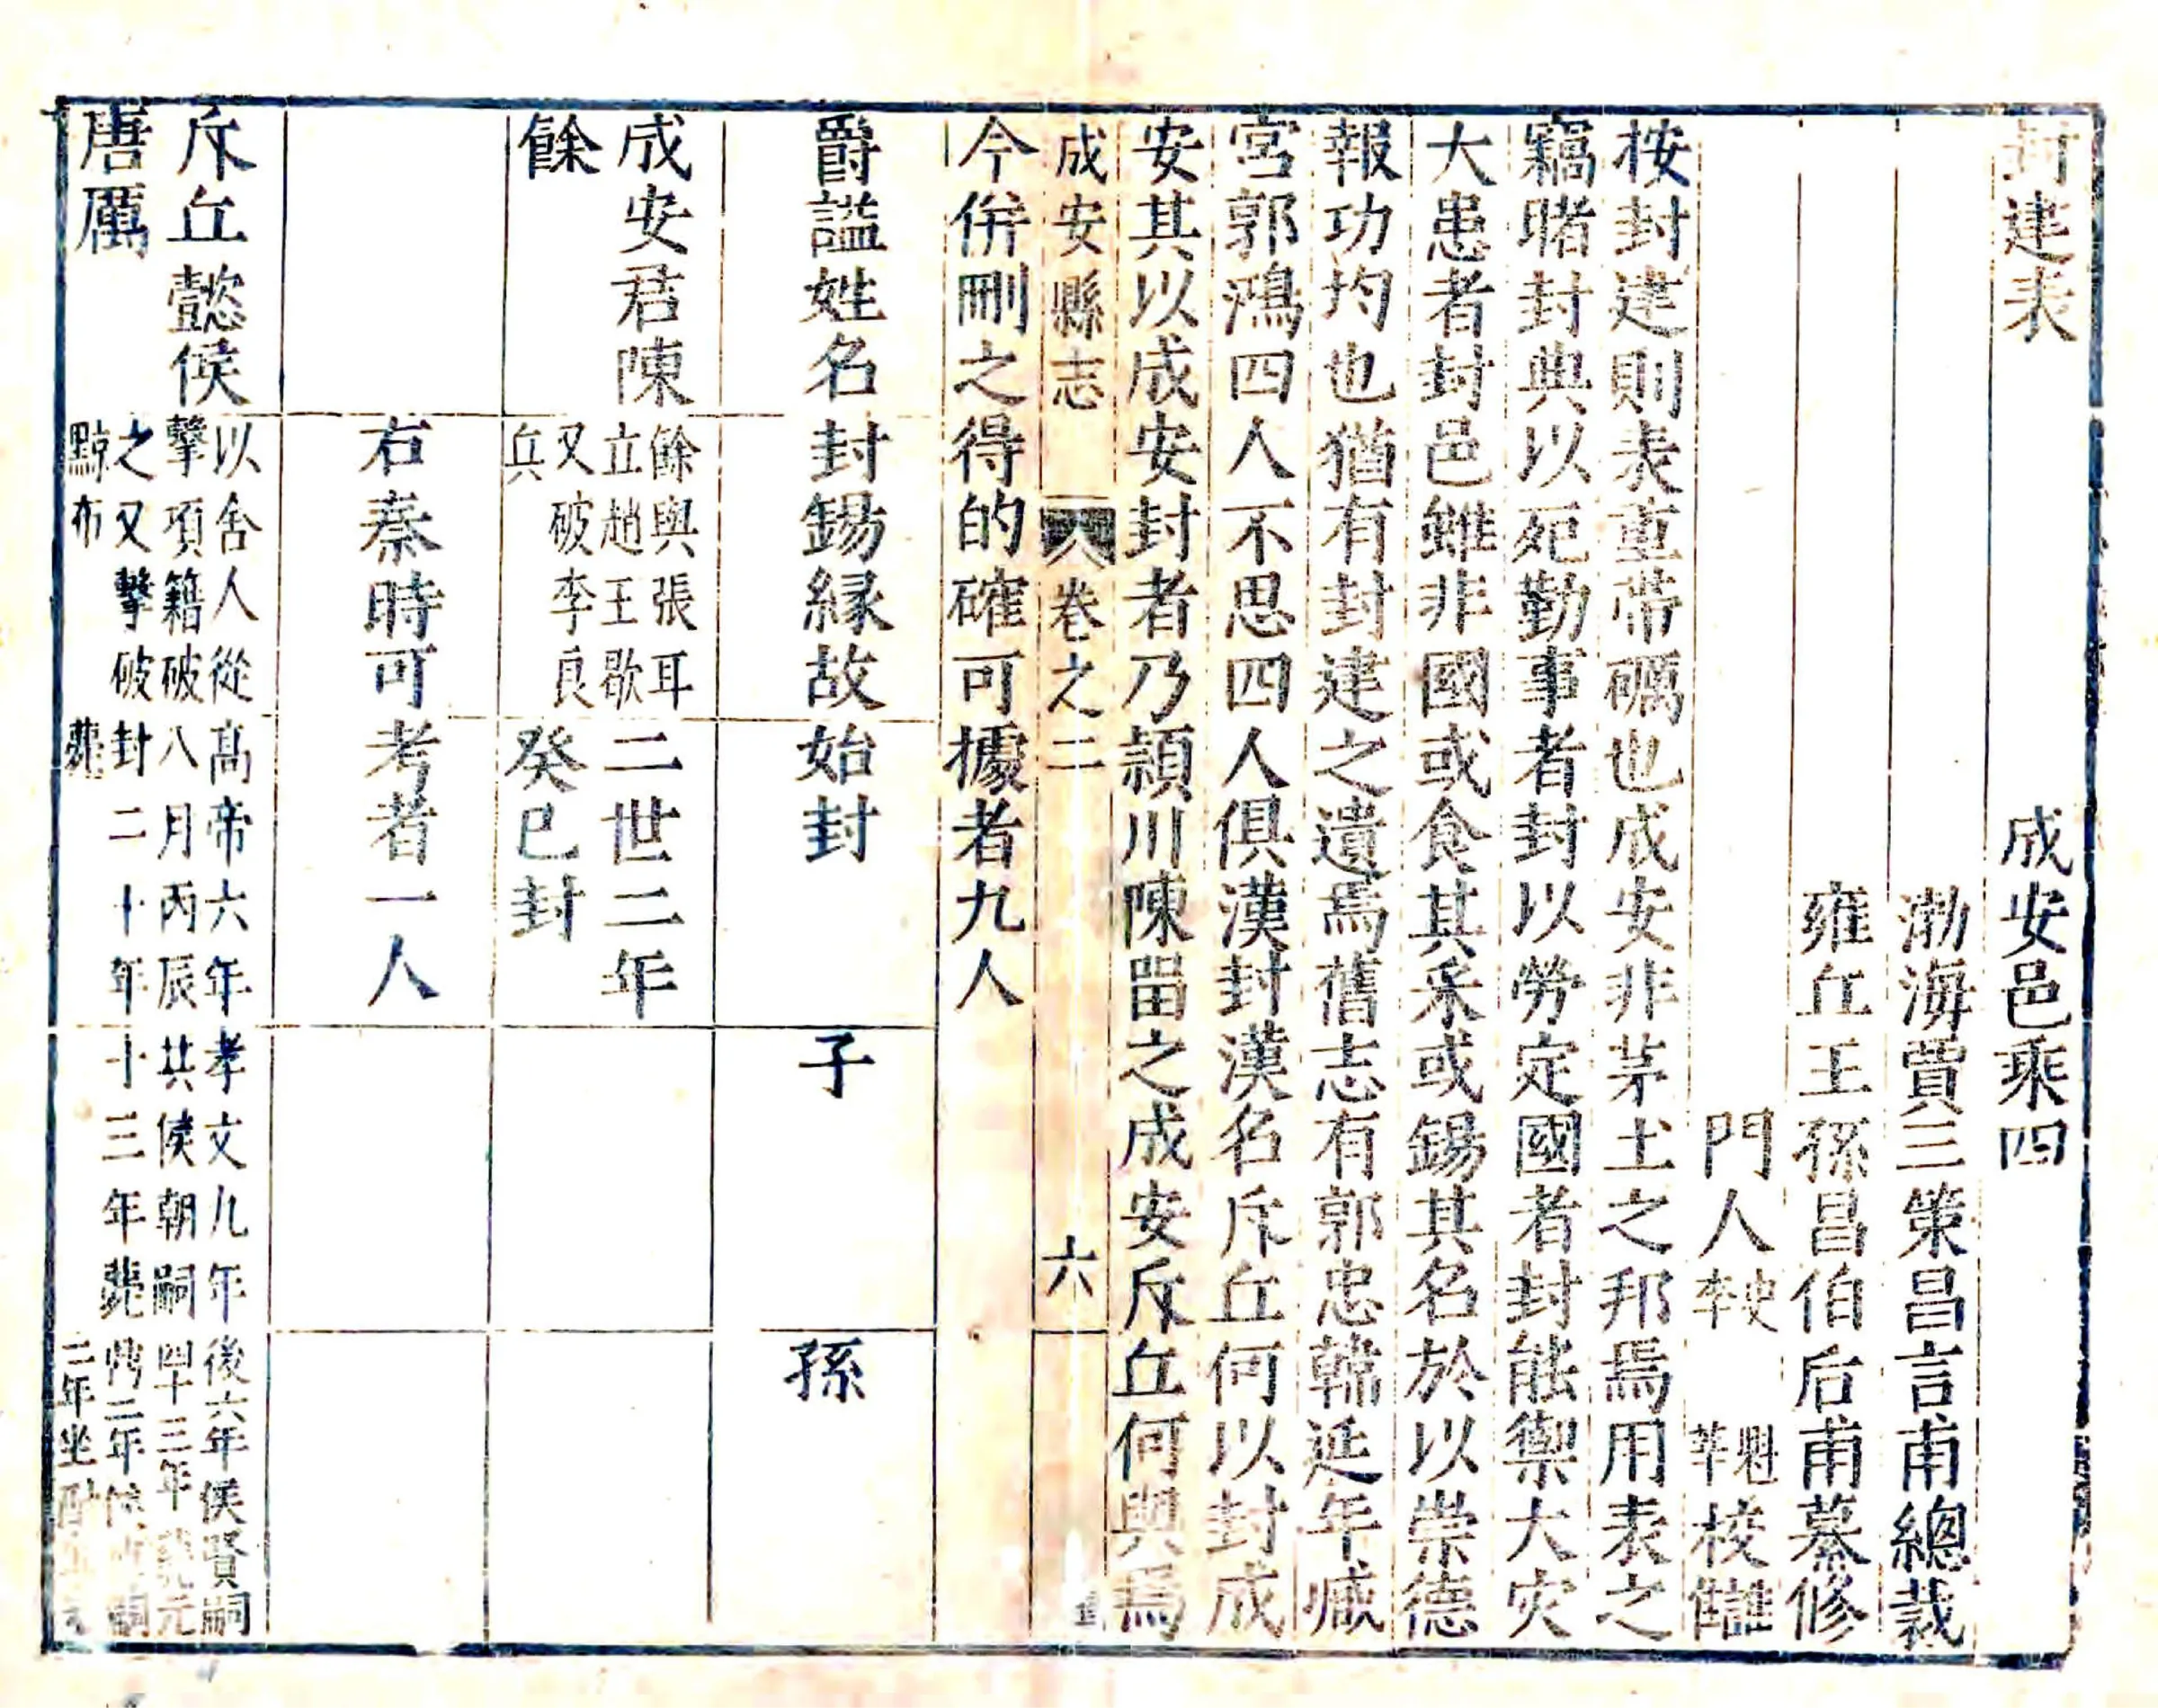 封建表　成安邑乘四
渤海賈三策昌言甫總裁
雍丘王孫昌伯后甫纂修
門人史李　魁華校讎
按封建則表重帶礪也成安非茅土之邦焉用表之
竊睹封典以死勤事者封以勞定國者封能禦大灾
大患者封邑雖非國或食其采或錫其名於以崇德
報功均也猶有封建之遺焉舊志有郭忠韓延年臧
宮郭鴻四人不思四人俱漢封漢名斥丘何以封成
安其以成安封者乃頴川陳畱之成安斥丘何與焉
成安縣志　卷之二　六
今併刪之得的確可據者九人
爵謚姓名　封錫縁故　始封　子　孫
成安君陳
餘
餘與張耳
立趙王歇
又破李良
兵
二世二年
癸巳封
右秦時可考者一人
斥丘懿侯
唐厲
以舍人從
擊項籍破
之又擊破
黥布
高帝六年
八月丙辰
封二十年
薨
孝文九年
共侯朝嗣
十三年薨
後六年侯賢嗣
四十三年薨元
鼎二年侯嗣
二年坐酎